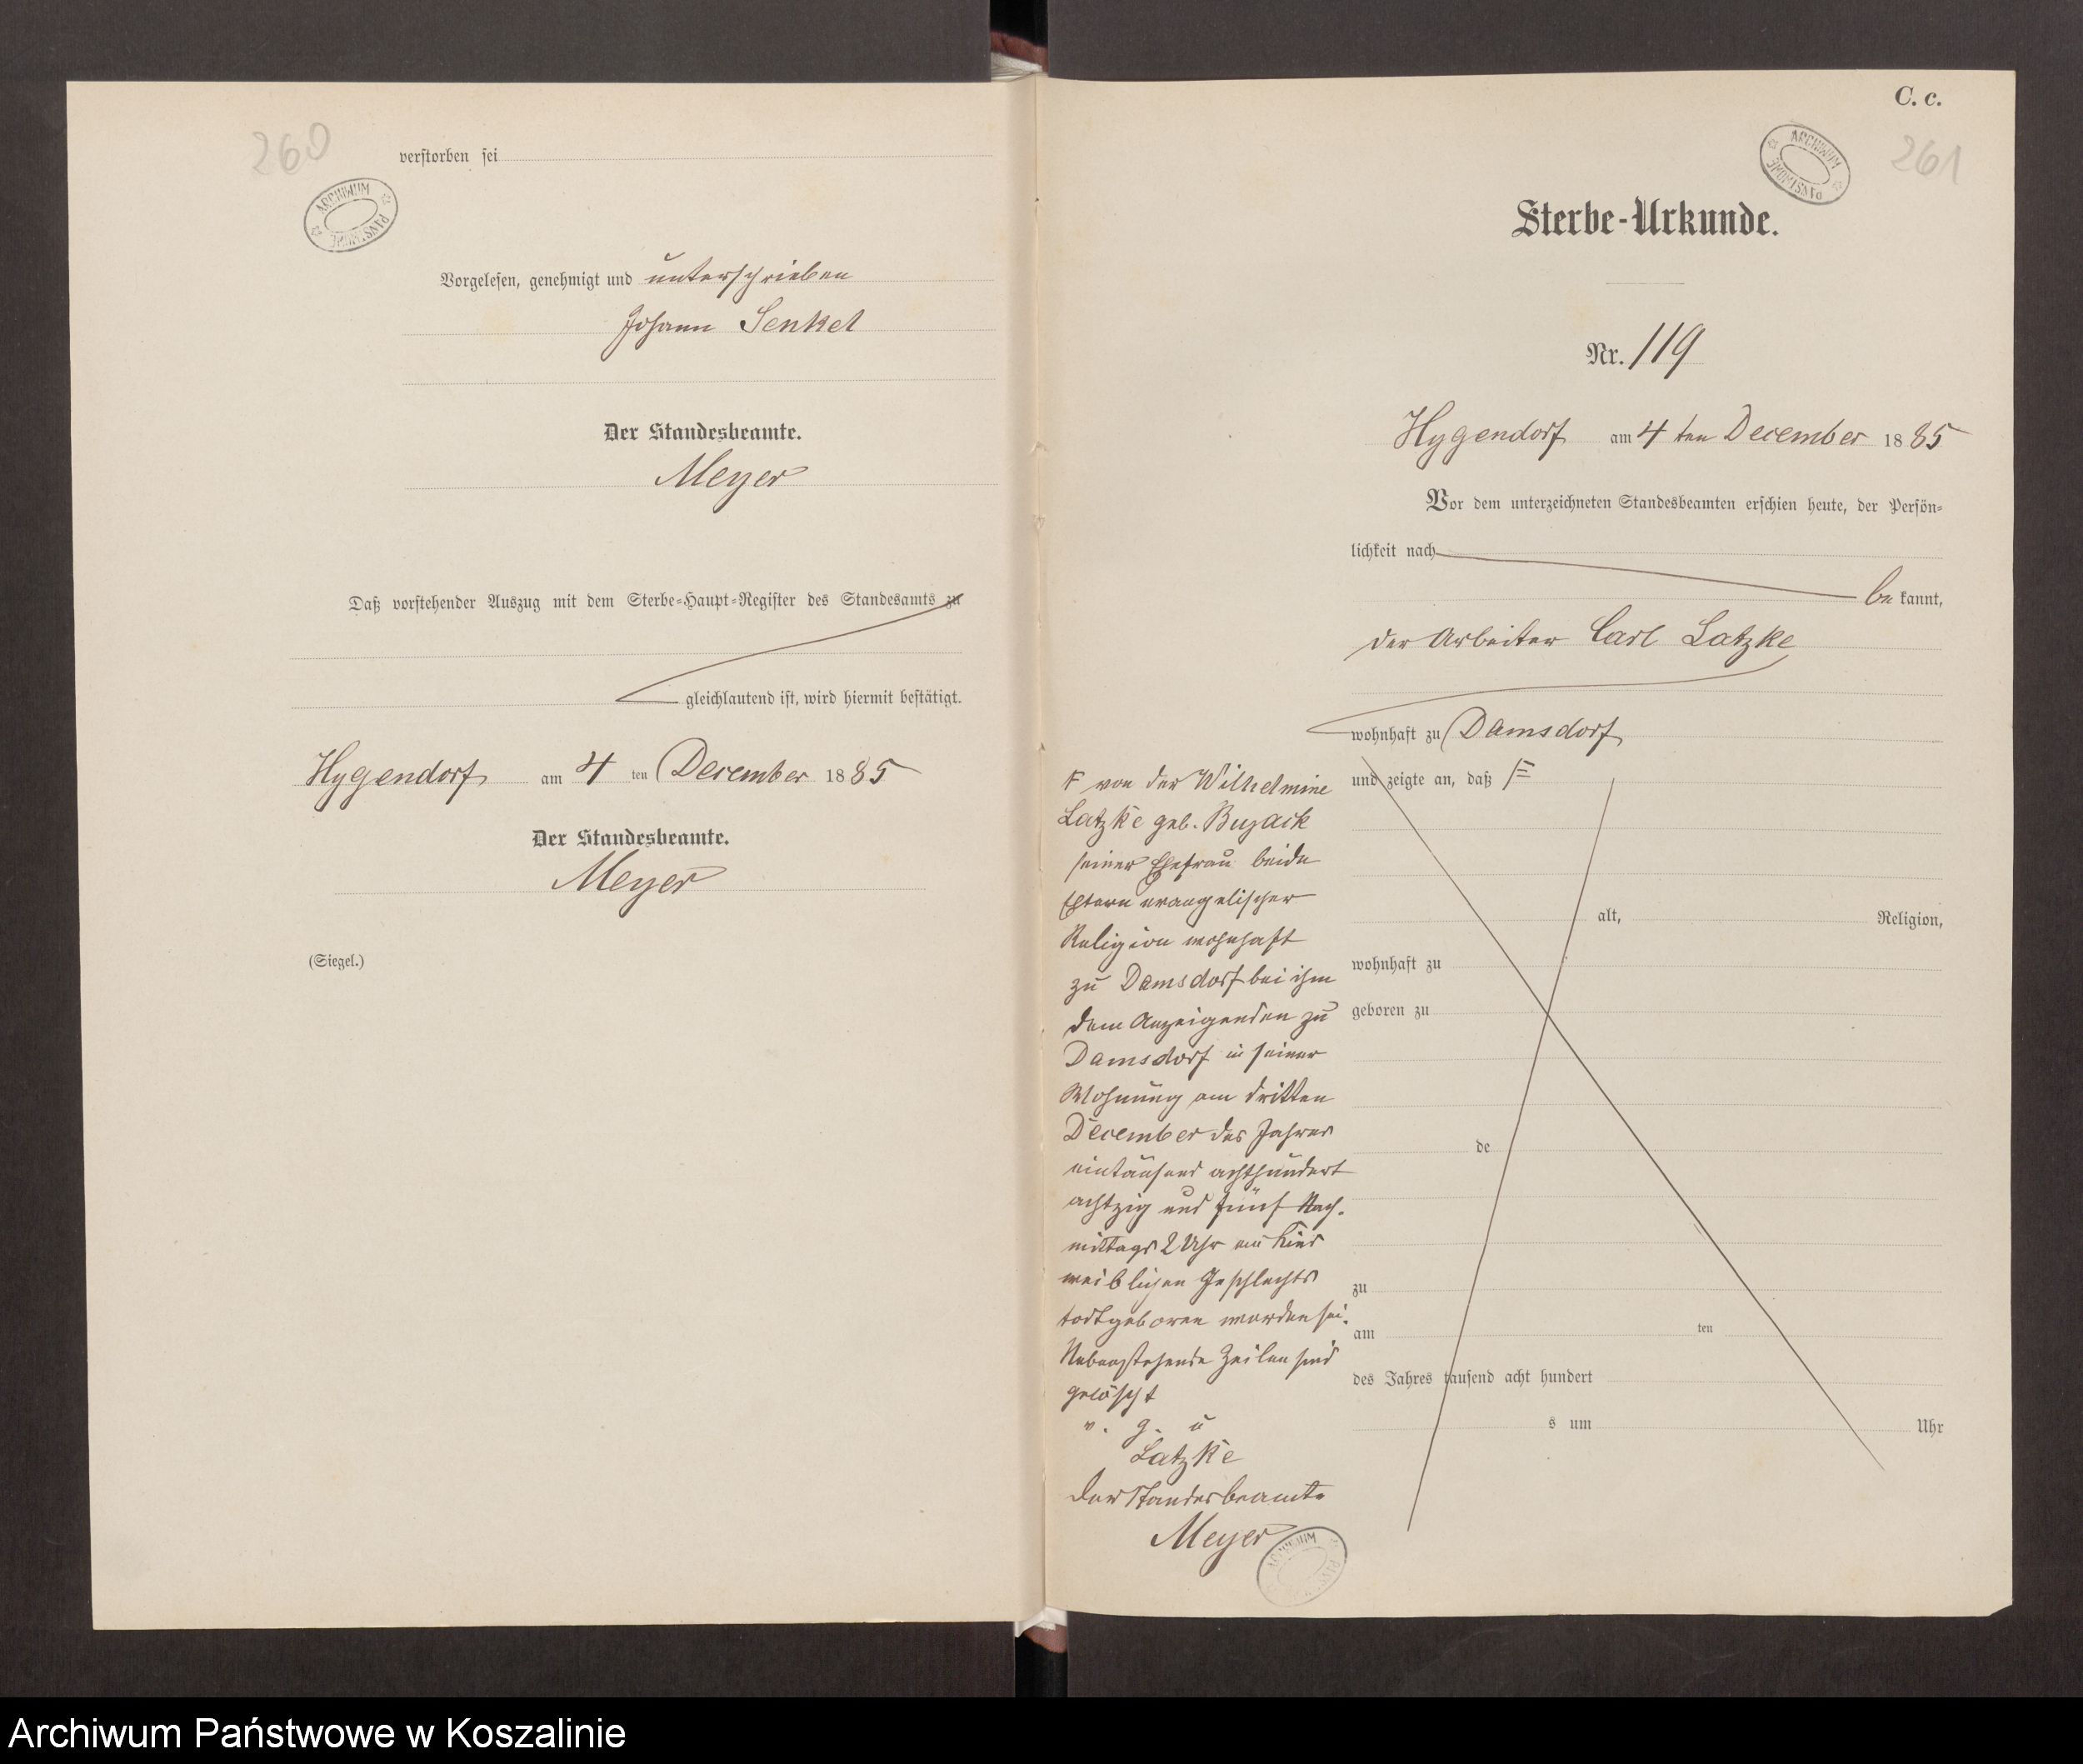 260
verstorben sei
ARCHIWUM PAŃSTWOWE
Vorgelesen, genehmigt und unterschrieben
Johann Senkel
Der Standesbeamte.
Meyer
Daß vorstehender Auszug mit dem Sterbe-Haupt-Register des Standesamts zu
gleichlautend ist, wird hiermit bestätigt.
Hygendorf am 4 ten December 1885
Der Standesbeamte.
Meyer
(Siegel.)
C. c.
261
ARCHIWUM PAŃSTWOWE
Sterbe-Urkunde.
Nr. 119
Hygendorf am 4 ten December 1885
Vor dem unterzeichneten Standesbeamten erschien heute, der Persön-
lichkeit nach
be kannt,
der Arbeiter Carl Latzke
wohnhaft zu Damsdorf
und zeigte an, daß F
alt, Religion,
wohnhaft zu
geboren zu
de
zu
am ten
des Jahres tausend acht hundert
s um Uhr
F von der Wilhelmine
Latzke geb. Buzack
seiner Ehefrau beide
Eltern evangelischer
Religion wohnhaft
zu Damsdorf bei ihm
dem Anzeigenden zu
Damsdorf in seiner
Wohnung am dritten
December des Jahres
eintausend achthundert
achtzig und fünf Nach-
mittags 2 Uhr ein Kind
weiblichen Geschlechts
todtgeboren worden sei.
Nebenstehende Zeilen sind
gelöscht
v. g. u
Latzke
Der Standesbeamte
Meyer
ARCHIWUM
Archiwum Państwowe w Koszalinie